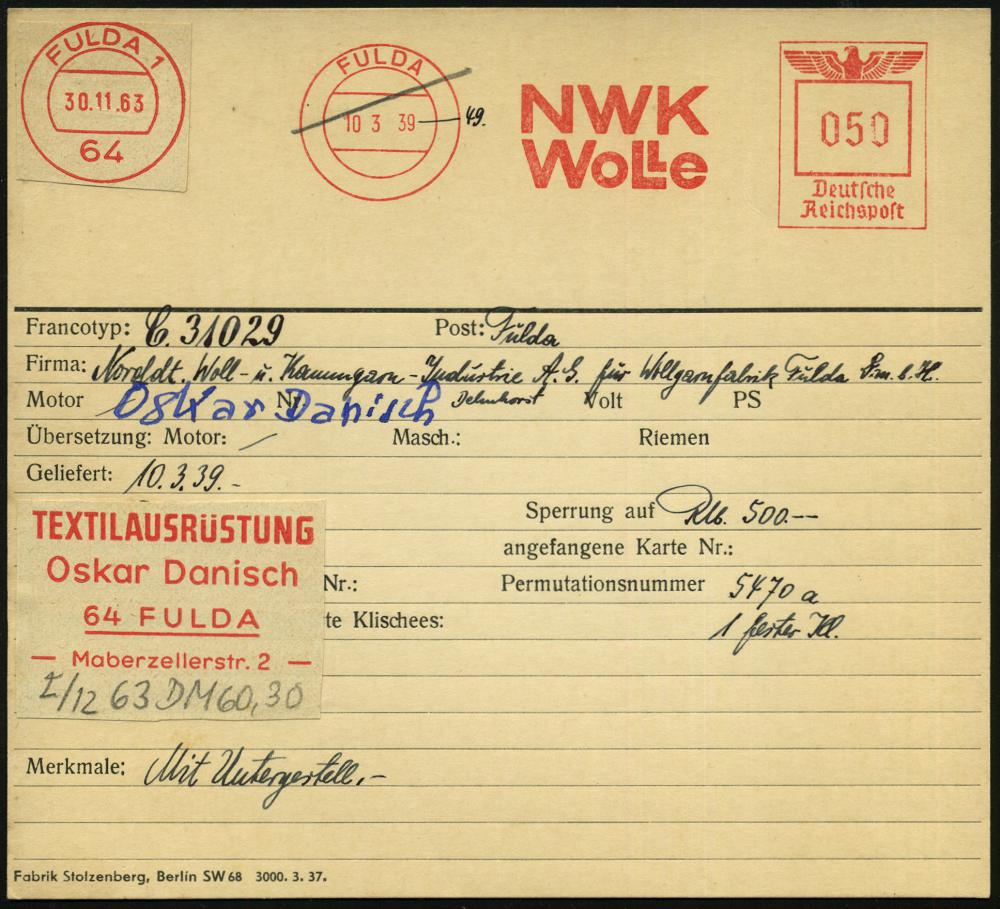 FULDA 1
30.11.63
64
FULDA
10 3 39 — 49.
NWK
Wolle
050
Deutsche
Reichspost
Francotyp: C. 31029 Post: Fulda
Firma: Norddt. Woll- u. Kammgarn-Industrie A.G. für Wollgarnfabrik Fulda G.m.b.H.
Motor Oskar Danisch Nr. Delmhorst Volt PS
Übersetzung: Motor: Masch.: Riemen
Geliefert: 10.3.39.-
Sperrung auf RM. 500.--
angefangene Karte Nr.:
Nr.: Permutationsnummer 5470a
te Klischees: 1 fester Kl.
TEXTILAUSRÜSTUNG
Oskar Danisch
64 FULDA
— Maberzellerstr. 2 —
I/12 63 DM 60,30
Merkmale: Mit Untergestell.-
Fabrik Stolzenberg, Berlin SW 68 3000. 3. 37.